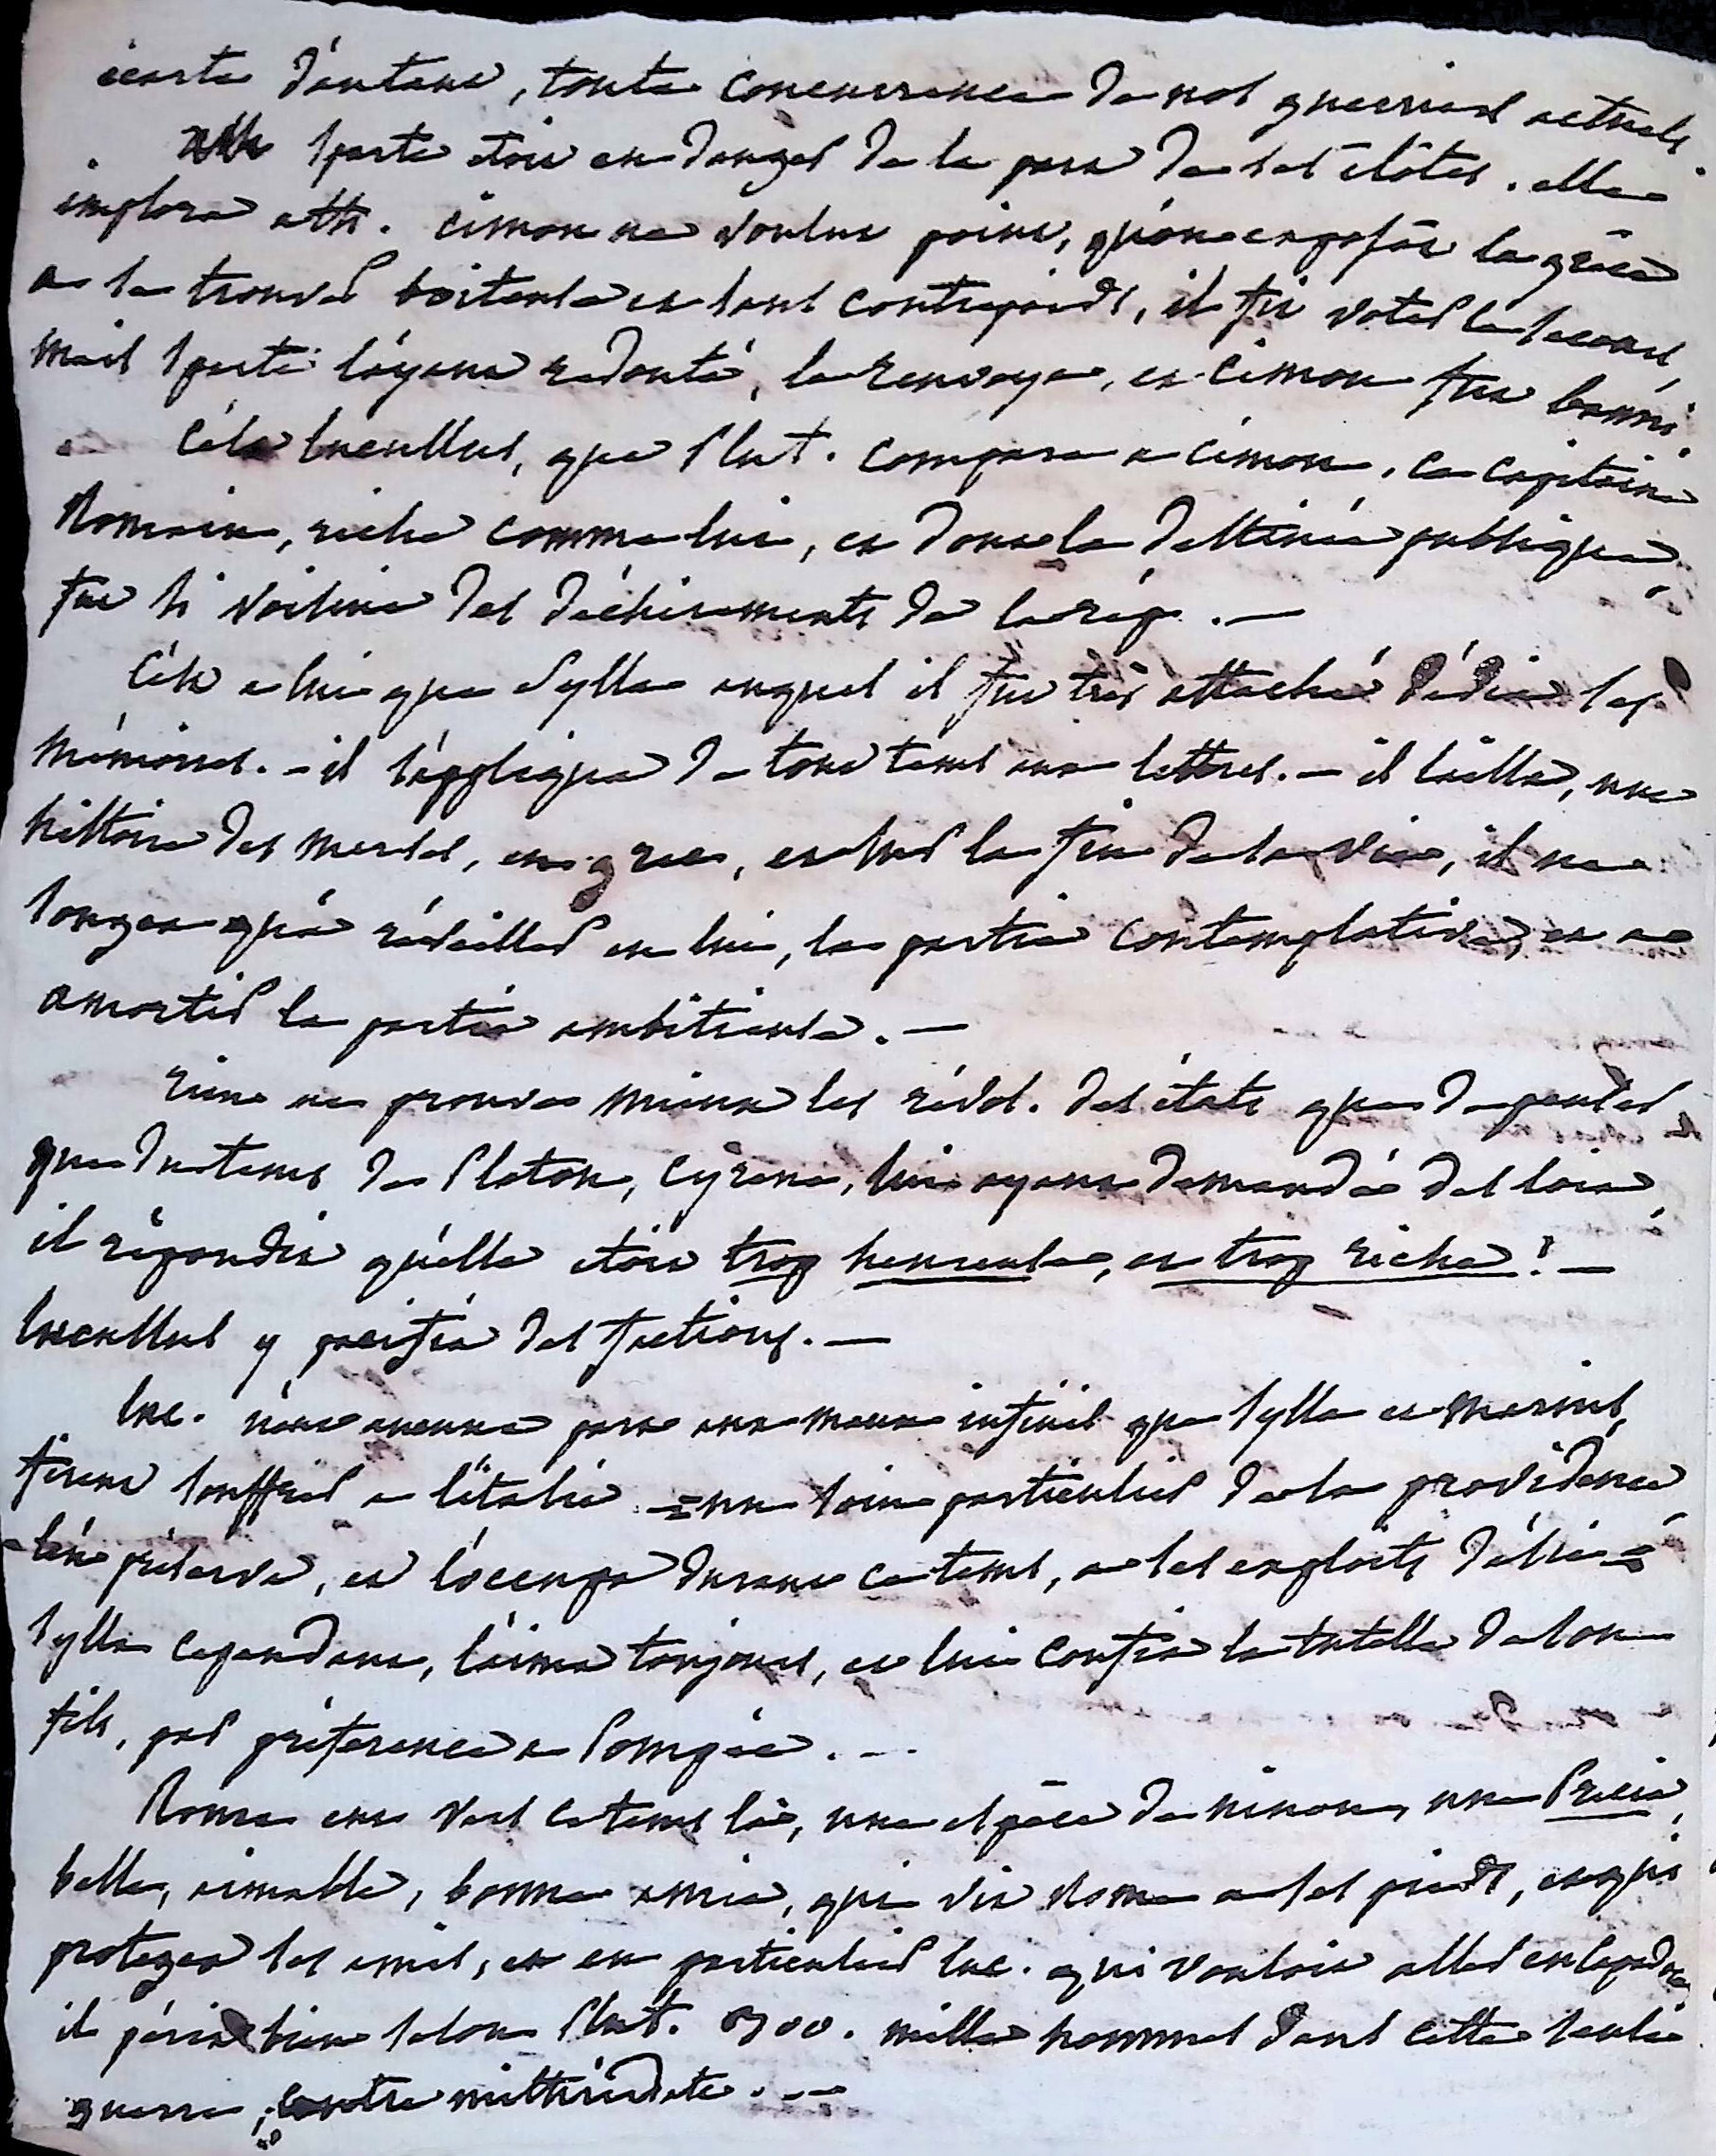 écarte d'autant, toute concurrence de nos guerriers actuels.
Sparte etoit en danger de la part de ses ilotes. elle
implora ath. cimon ne voulut point, qu'on exposât la grèce
a se trouver boiteuse et sans contrepoids, il fit voter le secours,
mais sparte l'ayant redouté, le renvoya, et cimon fut banni.
C'est lucullus, que Plut. compare a cimon. ce capitaine
Romain, riche comme lui, et dont la destinée publique,
fut si voisine des déchirements de la rép. —
C'est a lui que Sylla auquel il fut très attaché dédia ses
mémoires. - il s'appliqua de tout tems aux lettres. — il laissa, une
histoire des marses, en grec, et sur la fin de sa vie, il ne
songea qu'à réveiller en lui, la partie contemplative, et a
amortir la partie ambitieuse. —
rien ne prouve mieux les révol. des états que de penser
que du tems de Platon, Cyrene, lui ayant demandé des loix,
il répondit qu'elle etoit trop heureuse, et trop riche ! —
lucullus y pacifia des factions. —
luc. n'eut aucune part aux maux infinis que Sylla et Marius,
firent souffrir a l'italie = un soin particulier de la providence
l'en préserva, et l'occupa durant ce tems, a ses exploits d'asie =
Sylla cependant, l'aima toujours, et lui confia la tutelle de son
fils, par préférence a Pompée. —
Rome eut vers ce tems là, une espèce de ninon, une Precia,
belle, aimable, bonne amie, qui vit Rome a ses pieds, et qui
protegea ses amis, et en particulier luc. qui vouloit aller en cappadoce
il périt bien selon Plut. 300. mille hommes dans cette seule
guerre, contre mithridate. —